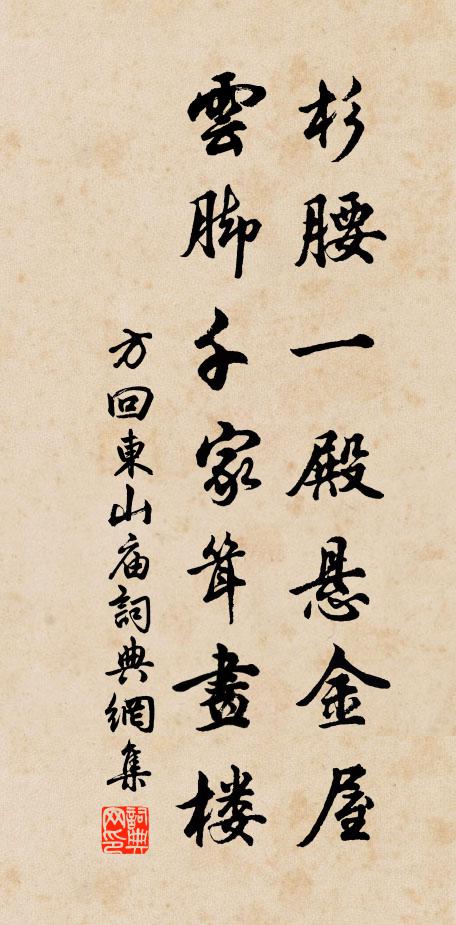 杉腰一殿悬金屋
雲脚千家耸畫楼
方回東山庙詞典網集
詞典网印